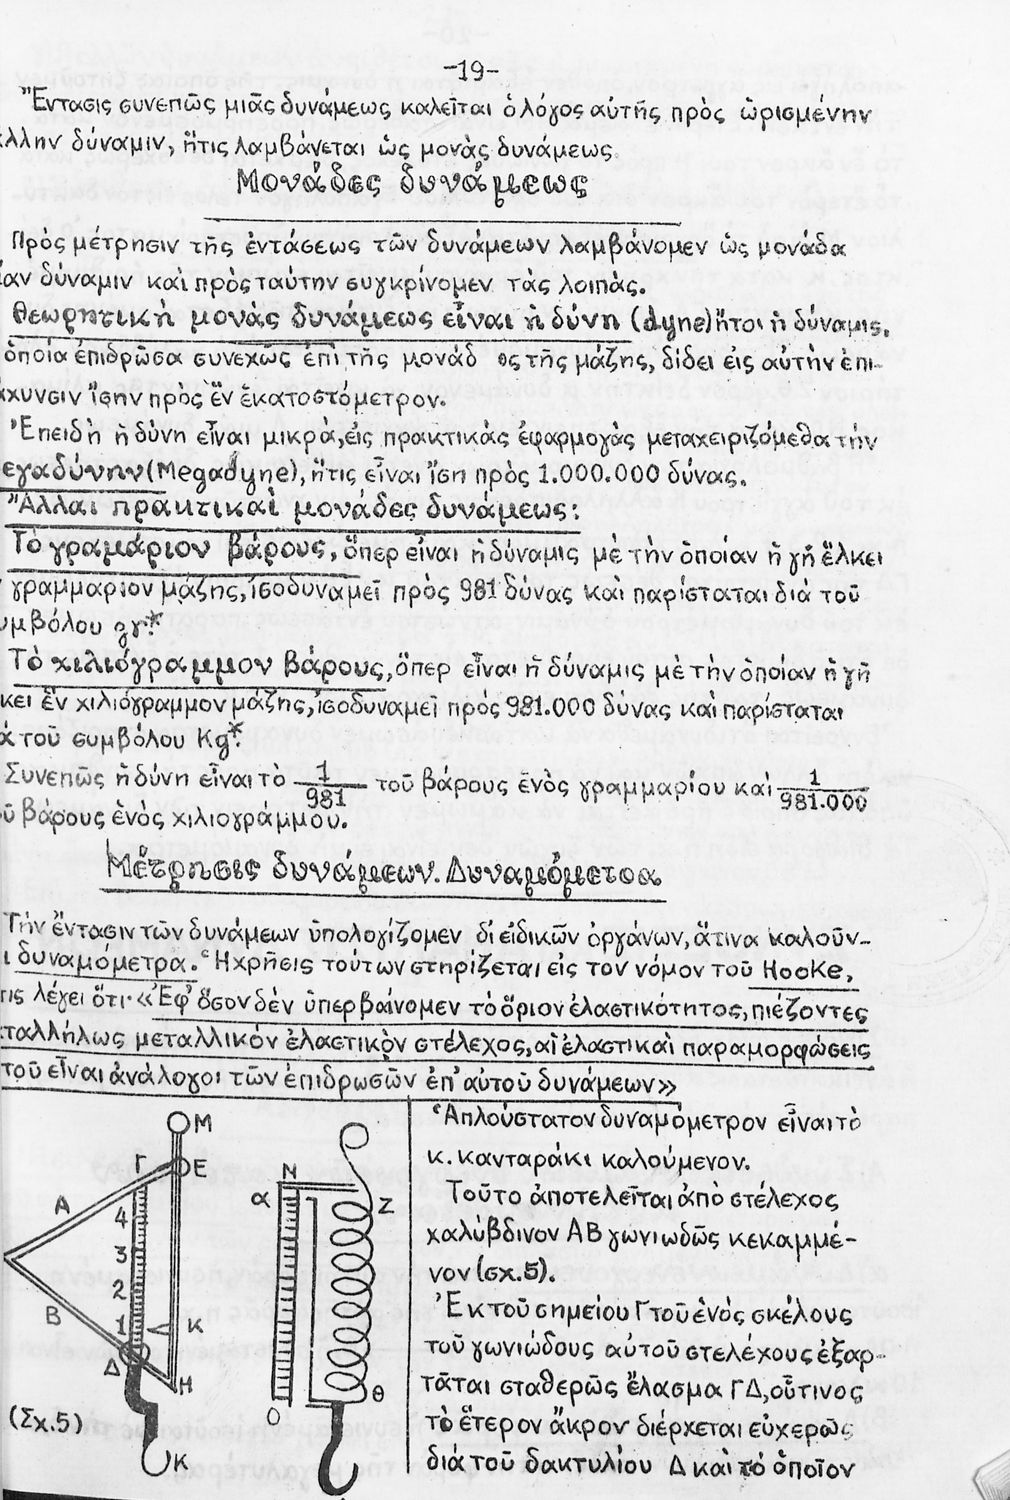 -19-
Ἔντασις συνεπῶς μιᾶς δυνάμεως καλεῖται ὁ λόγος αὐτῆς πρὸς ὡρισμένην
λλην δύναμιν, ἥτις λαμβάνεται ὡς μονὰς δυνάμεως.
Μονάδες δυνάμεως
Πρὸς μέτρησιν τῆς ἐντάσεως τῶν δυνάμεων λαμβάνομεν ὡς μονάδα
ίαν δύναμιν καὶ πρὸς ταύτην συγκρίνομεν τὰς λοιπάς.
Θεωρητικὴ μονὰς δυνάμεως εἶναι ἡ δύνη (dyne) ἤτοι ἡ δύναμις,
ὁποία ἐπιδρῶσα συνεχῶς ἐπὶ τῆς μονάδ ος τῆς μάζης, δίδει εἰς αὐτὴν ἐπι-
άχυνσιν ἴσην πρὸς ἓν ἑκατοστόμετρον.
Ἐπειδὴ ἡ δύνη εἶναι μικρά, εἰς πρακτικὰς ἐφαρμογὰς μεταχειριζόμεθα τὴν
εγαδύνην (Megadyne), ἥτις εἶναι ἴση πρὸς 1.000.000 δύνας.
Ἄλλαι πρακτικαὶ μονάδες δυνάμεως:
Τὸ γραμάριον βάρους, ὅπερ εἶναι ἡ δύναμις μὲ τὴν ὁποίαν ἡ γῆ ἕλκει
γραμμαριον μάζης, ἰσοδυναμεῖ πρὸς 981 δύνας καὶ παρίσταται διὰ τοῦ
υμβόλου gr*.
Τὸ χιλιόγραμμον βάρους, ὅπερ εἶναι ἡ δύναμις μὲ τὴν ὁποίαν ἡ γῆ
κει ἓν χιλιόγραμμον μάζης, ἰσοδυναμεῖ πρὸς 981.000 δύνας καὶ παρίσταται
ὰ τοῦ συμβόλου Kg*.
Συνεπῶς ἡ δύνη εἶναι τὸ 1/981 τοῦ βάρους ἑνὸς γραμμαρίου καὶ 1/981.000
οῦ βάρους ἑνὸς χιλιογράμμου.
Μέτρησις δυνάμεων. Δυναμόμετρα
Τὴν ἔντασιν τῶν δυνάμεων ὑπολογίζομεν δι' εἰδικῶν ὀργάνων, ἅτινα καλοῦν-
ι δυναμόμετρα. Ἡ χρῆσις τούτων στηρίζεται εἰς τον νόμον τοῦ Hooke,
τις λέγει ὅτι· «Ἐφ' ὅσον δὲν ὑπερβαίνομεν τὸ ὅριον ἐλαστικότητος, πιέζοντες
ταλλήλως μεταλλικὸν ἐλαστικὸν στέλεχος, αἱ ἐλαστικαὶ παραμορφώσεις
τοῦ εἶναι ἀνάλογοι τῶν ἐπιδρωσῶν ἐπ' αὐτοῦ δυνάμεων»
Μ
Γ
Ε
Α
4
3
2
1
Β
Κ
Δ
Η
(Σχ.5)
Κ
Ν
α
Ζ
Θ
Ο
Ἁπλούστατον δυναμόμετρον εἶναι τὸ
κ. κανταράκι καλούμενον.
Τοῦτο ἀποτελεῖται ἀπὸ στέλεχος
χαλύβδινον ΑΒ γωνιωδῶς κεκαμμέ-
νον (σχ.5).
Ἐκ τοῦ σημείου Γ τοῦ ἑνὸς σκέλους
τοῦ γωνιώδους αὐτοῦ στελέχους ἐξαρ-
τᾶται σταθερῶς ἔλασμα ΓΔ, οὗτινος
τὸ ἕτερον ἄκρον διέρχεται εὐχερῶς
διὰ τοῦ δακτυλίου Δ καὶ τὸ ὁποῖον